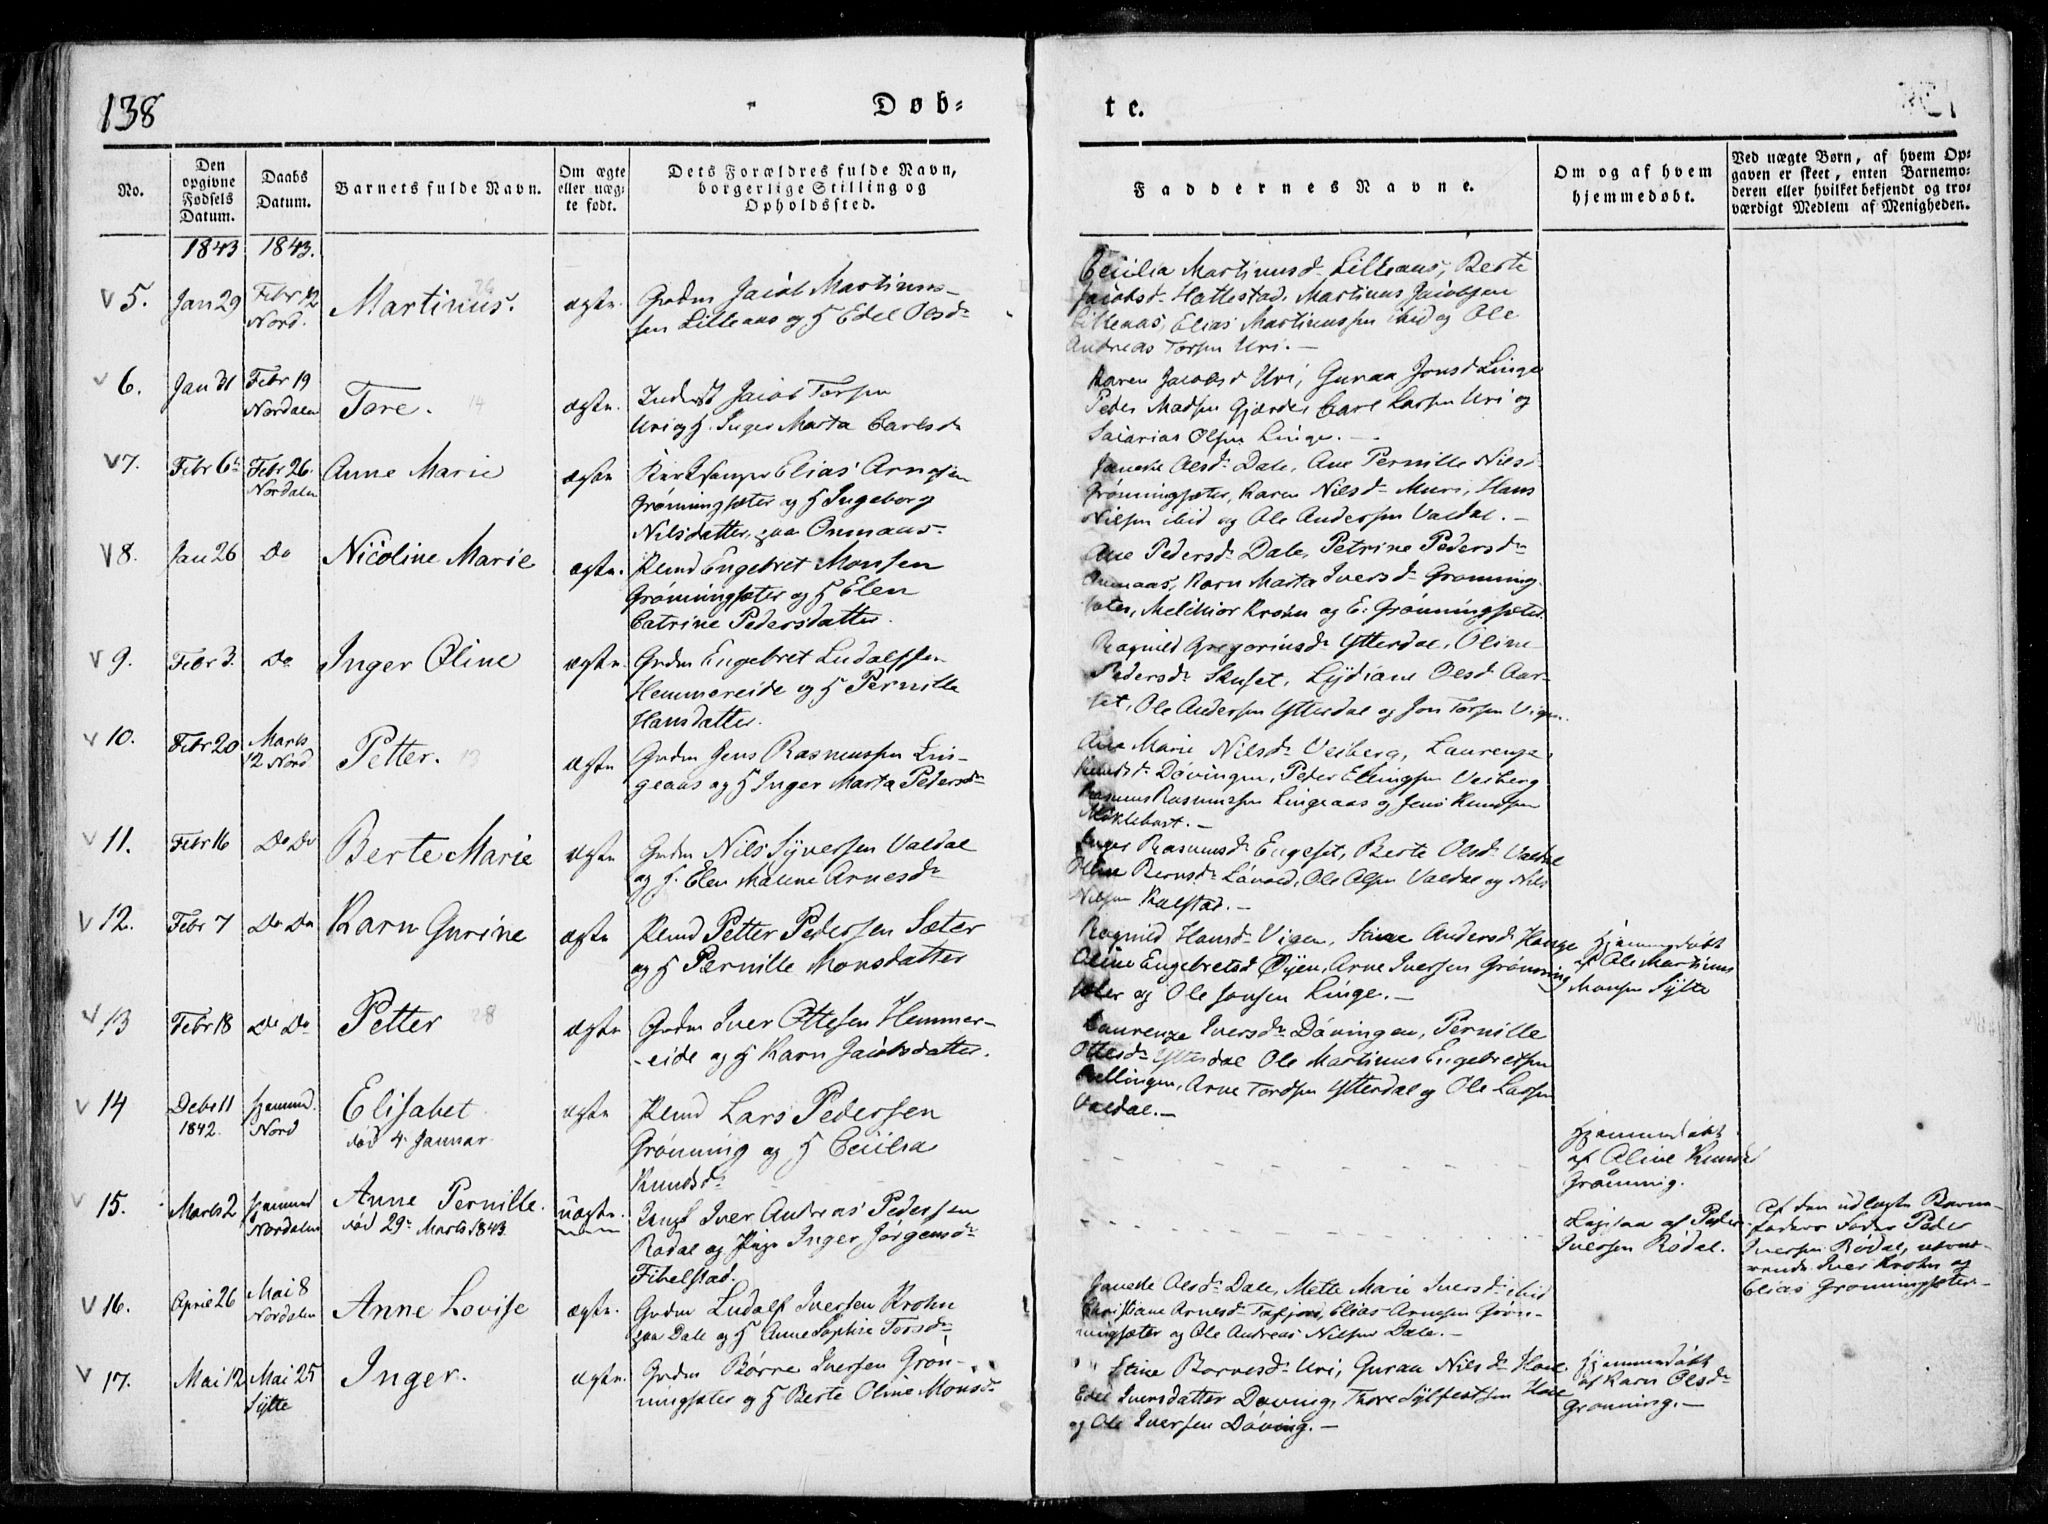 138
Døb-
te.
No.
Den opgivne Fødsels Datum.
Daabs Datum.
Barnets fulde Navn.
Om ægte eller uæg-te født.
Dets Forældres fulde Navn, borgerlige Stilling og Opholdssted.
Faddernes Navne.
Om og af hvem hjemmedøbt.
Ved uægte Børn, af hvem Op-gaven er skeet, enten Barnemo-deren eller hvilket bekjendt og tro-værdigt Medlem af Menigheden.
1843 1843.
5. Jan 29 Febr 12 Nord. Martinus. ægte.
Grdm Jacob Martinus-
sen Lilleaas og H Edel Olsdr
Cecilia Martinusd Lilleaas, Berte
Jacobsd Hattestad, Martinus Jacobsen
Lilleaas, Elias Martinussen ibid og Ole
Andreas Torsen Uri.-
6. Jan 31 Febr 19 Nordalen Tore. ægte.
Inderst Jacob Torsen
Uri og H. Inger Marta Carlsdr
Karen Jacobsd Uri, Guraa Jonsd Linge
Peder Madsen Gjærde, Carl Larsen Uri og
Sacarias Olsen Linge.-
7. Febr 6 Febr 26. Nordalen Anne Marie ægte
Kirksanger Elias Arnesen
Grønningsæter og H Ingeborg
Nilsdatter paa Onmaas.
Olsd Dale, Ane Pernille Nilsd
Grønningsæter, Karen Nilsd Muri, Hans
Nilsen ibid og Ole Andersen Valdal.-
8. Jan 26 Do Nicoline Marie ægte.
Psmd Engebret Monsen
Grønningsæter og H Elen
Catrine Pedersdatter.
Ane Pedersd Dale, Petrine Pedersdr
Onmaas, Karn Marta Iversd Grønning-
sæter, Melchior Krohn og E: Grønningsæter
9. Febr 3. Do Inger Oline ægte.
Grdm Engebret Ludolfsen
Hemmereide og H Pernille
Hansdatter.
Ragnild Gregoriusd Ytterdal, Oline
Pedersd Skuset, Lydiane Olsd Aar-
set, Ole Andersen Ytterdal og Jon Torsen Vigen.
10. Febr 20 Marts 12 Nord Petter. ægte
Grdm Jens Rasmussen Lin-
geaas og H Inger Marta Pedersdr
Ane Marie Nilsd Veiberg, Laurenze
Knudsd Døvingen, Peder Ellingsen Veiberg
Rasmus Rasmussen Lingeaas og Jens Knudsen
Mklebost.-
11. Febr 16 Do Do Berte Marie ægte
Grdm Nils Syversen Valdal
og H. Elen Malene Arnesdr
Inger Rasmusd Engeset, Berte Olsd Valdal
Oline Berntsd Løvold, Ole Olsen Valdal og Nils
Nilsen Kalstad.-
12. Febr 7 Do Do Karn Gurine ægte
Psmd Petter Pedersen Sæter
og H Pernille Monsdatter
Ragnild Hansd Vigen, Andersd Hauge
Oline Engebretsd Øyen, Arne Iversen Grønning
sæter og Ole Jonsen Linge.-
Hjemmedøbt
af Ole Martinus
Monsen Sylte
13 Febr 18 Do Do Petter ægte
Grdm Iver Ottesen Hemmer-
-eide og H Karn Jacobsdatter.
Laurenze Iversd Døvingen, Pernille
Ottesd Ytterdal Ole Martinus Engebretsen
Rellingen, Arne Tordsen Ytterdal og Ole Larsen
Valdal.-
14 Debr 11 1842. Hjemmed. Nord Elisabet død 4 Januar ægte
Psmd Lars Pedersen
Grønning og H Cecilia
Knudsdr
Hjemmedøbt
af Oline Knudsd
Grønning.
15. Marts 2 Hjemmed Nordalen Anne Pernille. død 29 Marts 1843. uægte.
Ungk Iver Andreas Pedersen
Rødal og Pige Inger Jørgensdr
Fibelstad.
Ligesaa af Peder
Iversen Rødal.
Af den udlagte Barne-
faders Fader Peder
Iversen Rødal,
Iver Krohn og
Elias Grønningsæter.-
16. April 26 Mai 8 Nordalen Anne Lovise ægte.
Grdm Ludolf Iversen Krohn
paa Dale og H Anne Sophie Torsdr
Olsd Dale, Mette Marie Iversd ibid
Christiane Arnesd Tafjord, Elias Arnesen Grøn-
ningsæter og Ole Andreas Nilsen Dale.-
17. Mai 12 Mai 25 Sylte Inger. ægte.
Grdm Børre Iversen Grøn-
ningsæter og H Berte Oline Monsdr
Eline Borresd Uri, Guraa Nilsd Hoel
Edel Iversdatter Døving, Thore Sylfestsen Hoel
og Ole Iversen Døving.-
Hjemmedøbt
af Karn Olsdr
Grønning.-